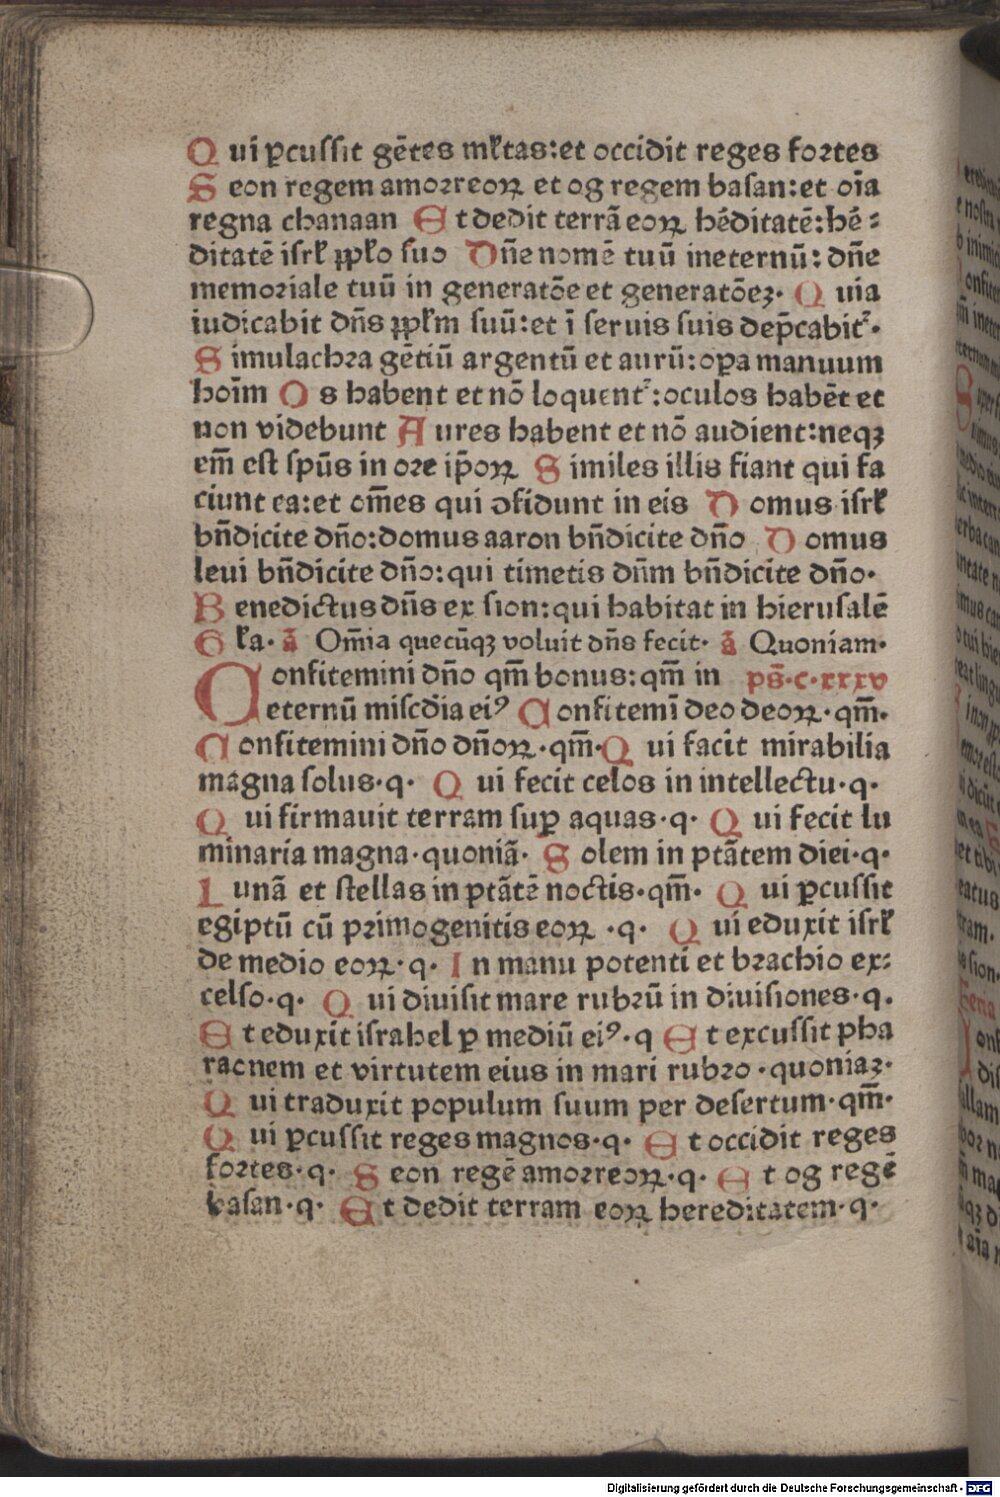 Qui ꝑcuſſit gētes mĺtas:et occidit reges foꝛtes
Seon regem amoꝛreoꝝ et og regem baſan:et oīa
regna chanaan Et dedit terrā eoꝝ hēditatē:hē⸗
ditatē iſrĺ ꝓpĺo ſuo Dn̄e nomē tuū ineternū: dn̄e
memoꝛiale tuū in generatōe et generatōeꝫ· Quia
iudicabit dn̄s ꝓpĺm ſuū:et ī ſeruis ſuis dep̄cabit᷑·
Simulachꝛa gētiū argentū et aurū:oꝑa manuum
hoīm Os habent et nō loquent᷑:oculos habēt et
non videbunt Aures habent et nō audient:neqꝫ
em̄ eſt ſpūs in oꝛe ip̄oꝝ Similes illis fiant qui fa
ciunt ea:et om̄es qui ↄfidunt in eis Domus iſrĺ
bn̄dicite dn̄o:domus aaron bn̄dicite dn̄o Domus
leui bn̄dicite dn̄o:qui timetis dn̄m bn̄dicite dn̄o·
Benedictus dn̄s ex ſion:qui habitat in hieruſalē
Gĺa· ā Om̄ia quecūqꝫ voluit dn̄s fecit· ā Quoniam·
Confitemini dn̄o qm̄ bonus:qm̄ in pſ̄·c·xxxv
eternū miſcd̄ia eiꝰ Confitemī deo deoꝝ·qm̄·
Confitemini dn̄o dn̄oꝝ·qm̄· Qui facit mirabilia
magna ſolus·q· Qui fecit celos in intellectu·q·
Qui firmauit terram ſuꝑ aquas·q· Qui fecit lu
minaria magna·quoniā· Solem in ptātem diei·q·
Lunā et ſtellas in ptātē noctis·qm̄· Qui ꝑcuſſit
egiptū cū pꝛimogenitis eoꝝ ·q· Qui eduxit iſrĺ
de medio eoꝝ·q· In manu potenti et bꝛachio ex:
celſo·q· Qui diuiſit mare rubꝛū in diuiſiones·q.
Et eduxit iſrahel ꝑ mediū eiꝰ·q Et excuſſit pha
raonem et virtutem eius in mari rubꝛo·quoniaꝫ·
Qui traduxit populum ſuum per deſertum·qm̄·
Qui ꝑcuſſit reges magnos·q· Et occidit reges
foꝛtes·q· Seon regē amoꝛreoꝝ·q· Et og regē
baſan·q· Et dedit terram eoꝝ hereditatem·q·
Digitalisierung gefördert durch die Deutsche Forschungsgemeinschaft - DFG